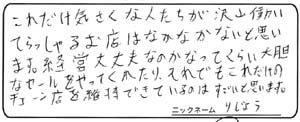 これだけ気さくな人たちが沢山働い
てらっしゃるお店はなかなかないと思い
ます。経営大丈夫なのかなってくらい大胆
なセールをやってくれたり、それでもこれだけの
チェーン店を維持できているのはすごいと思います。
ニックネーム りしなう